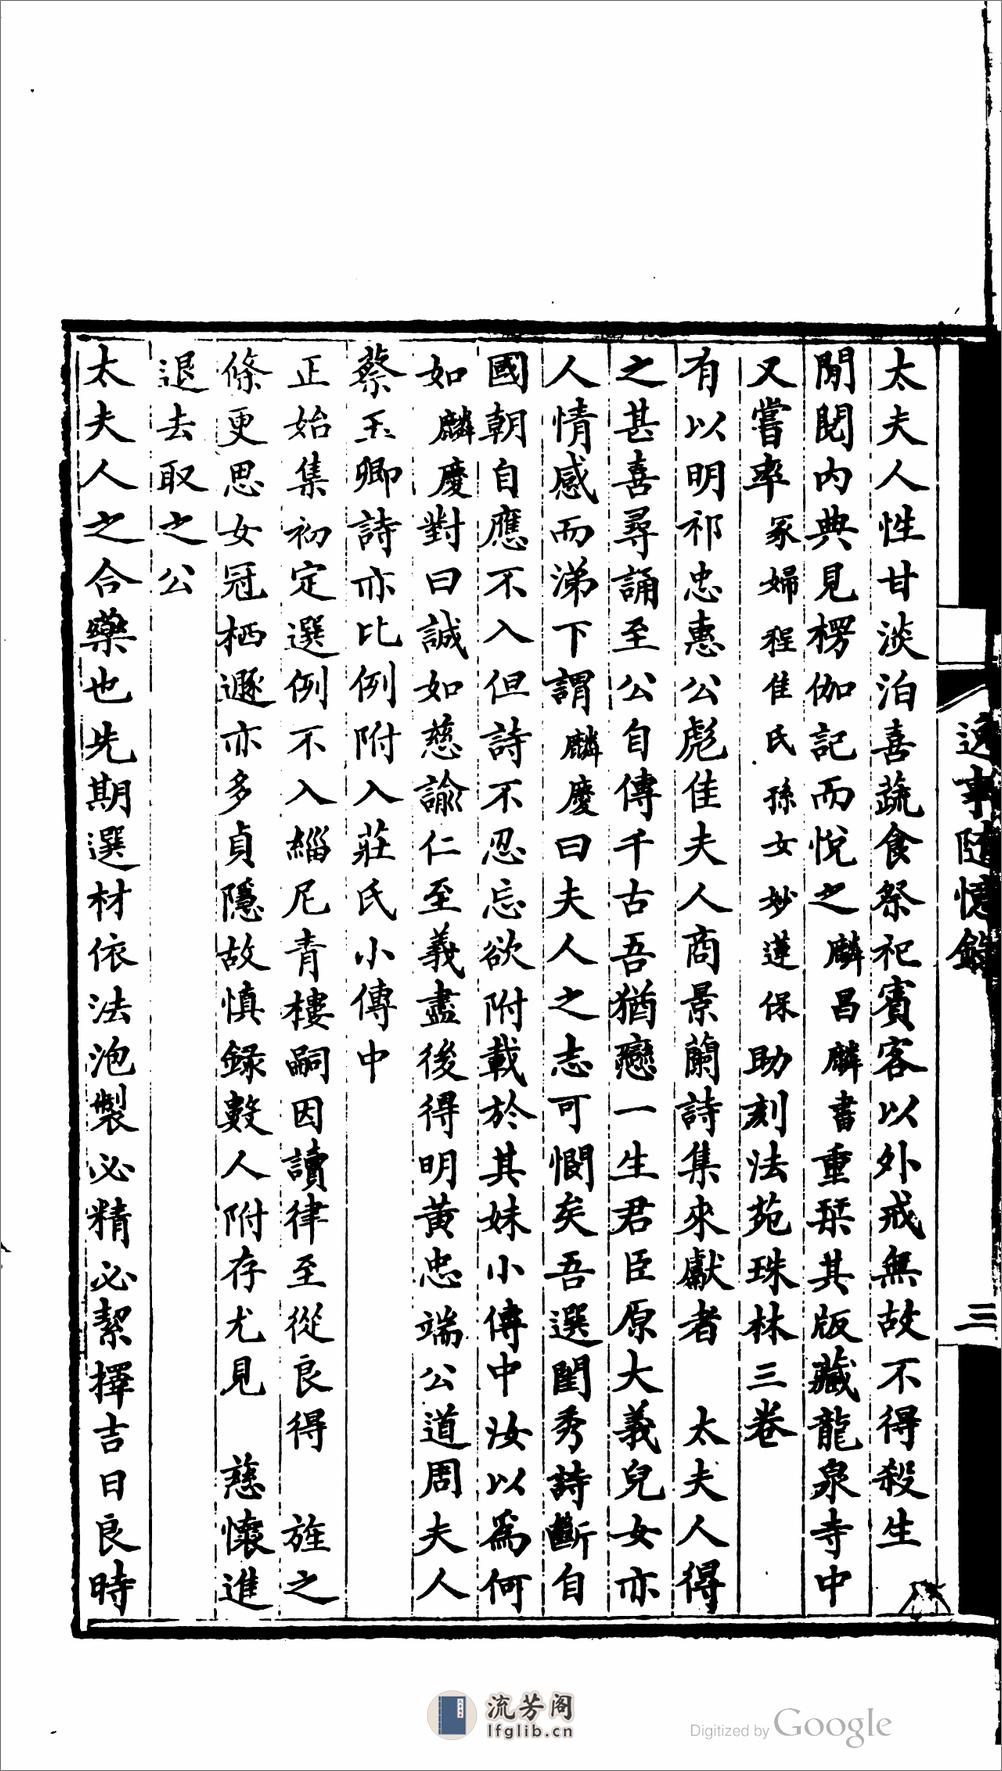 太夫人性甘淡泊喜蔬食祭祀賓客以外戒無故不得殺生
閒閱内典見楞伽記而悅之麟昌麟書重栞其版藏龍泉寺中
又嘗率冢婦程佳氏孫女妙蓮保助刻法苑珠林三卷
有以明祁忠惠公彪佳夫人商景蘭詩集來獻者 太夫人得
之甚喜尋誦至公自傳千古吾猶戀一生君臣原大義兒女亦
人情感而涕下謂麟慶曰夫人之志可憫矣吾選閨秀詩斷自
國朝自應不入但詩不忍忘欲附載於其妹小傳中汝以為何
如麟慶對曰誠如慈諭仁至義盡後得明黃忠端公道周夫人
蔡玉卿詩亦比例附入莊氏小傳中
正始集初定選例不入緇尼青樓嗣因讀律至從良得 旌之
條更思女冠栖遯亦多貞隱故慎録數人附存尤見 慈懷進
退去取之公
太夫人之合藥也先期選材依法泡製必精必絜擇吉日良時
逸事隨憶錄
三
流芳阁
lfglib.cn
Digitized by Google